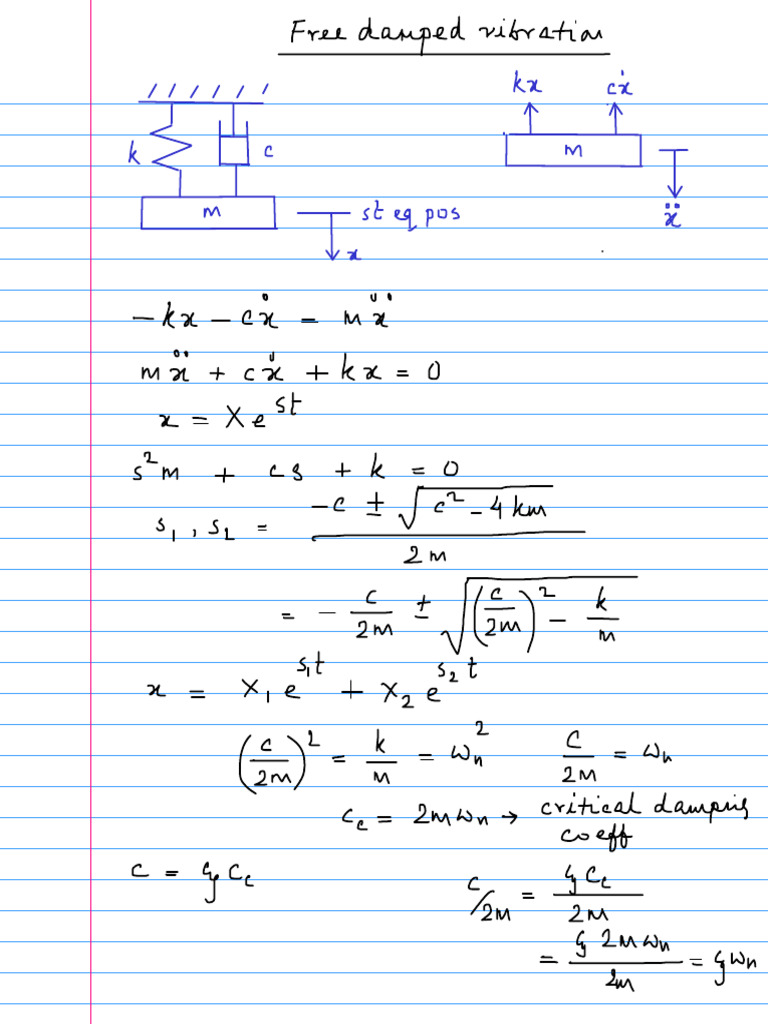 Free damped vibration
kx cẋ
k c m
m st eq pos ẍ
x
-kx - cẋ = mẍ
mẍ + cẋ + kx = 0
x = X e^st
s²m + cs + k = 0
s₁, s₂ = (-c ± √(c² - 4km)) / 2m
= - c/2m ± √((c/2m)² - k/m)
x = X₁ e^s₁t + X₂ e^s₂t
(c/2m)² = k/m = ωn² c/2m = ωn
Cc = 2mωn → critical damping
coeff
c = ξ Cc c/2m = ξ Cc / 2m
= ξ 2mωn / 2m = ξωn